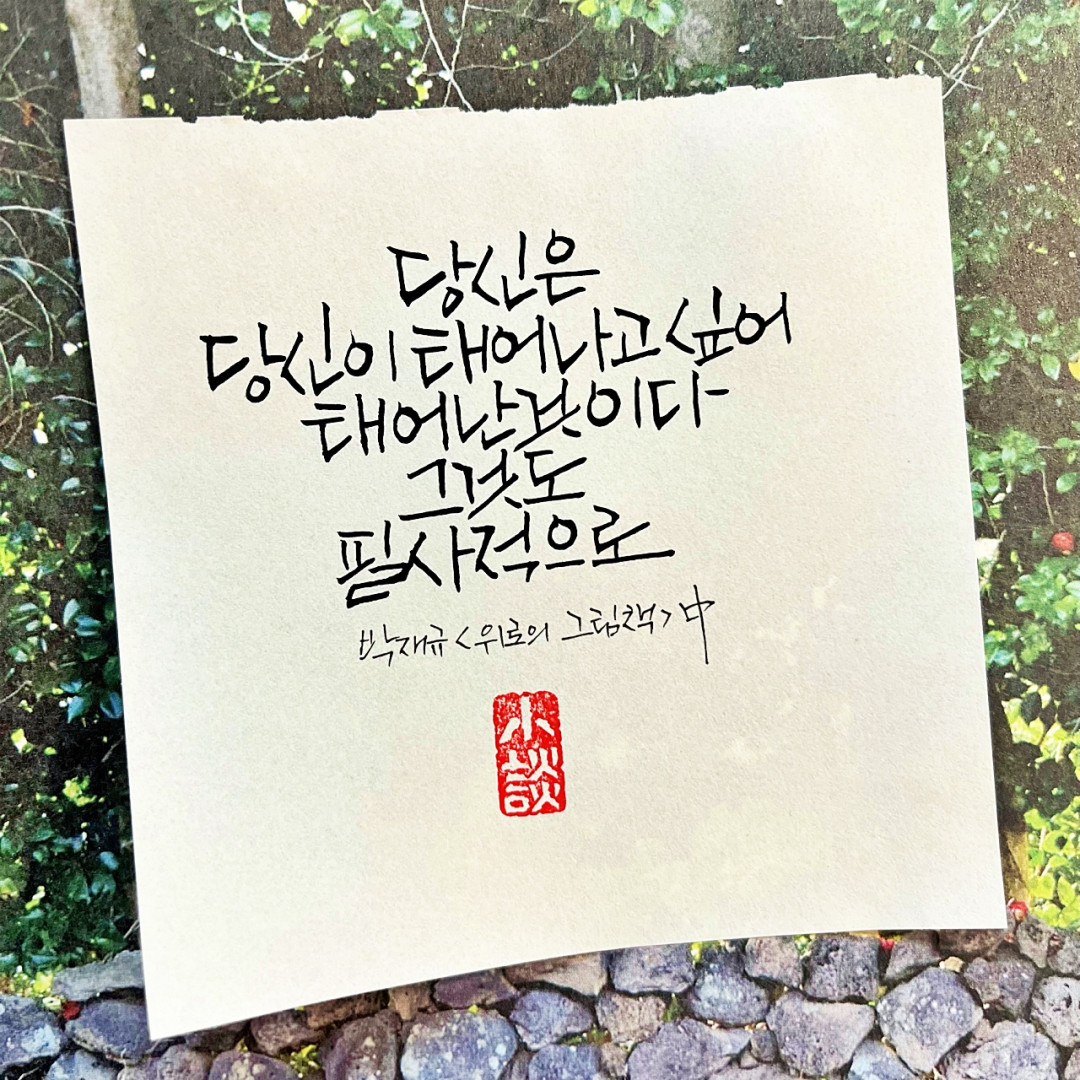 당신은
당신이 태어나고 싶어
태어난 것이다
그것도
필사적으로
박재규 <위로의 그림책> 中
小談